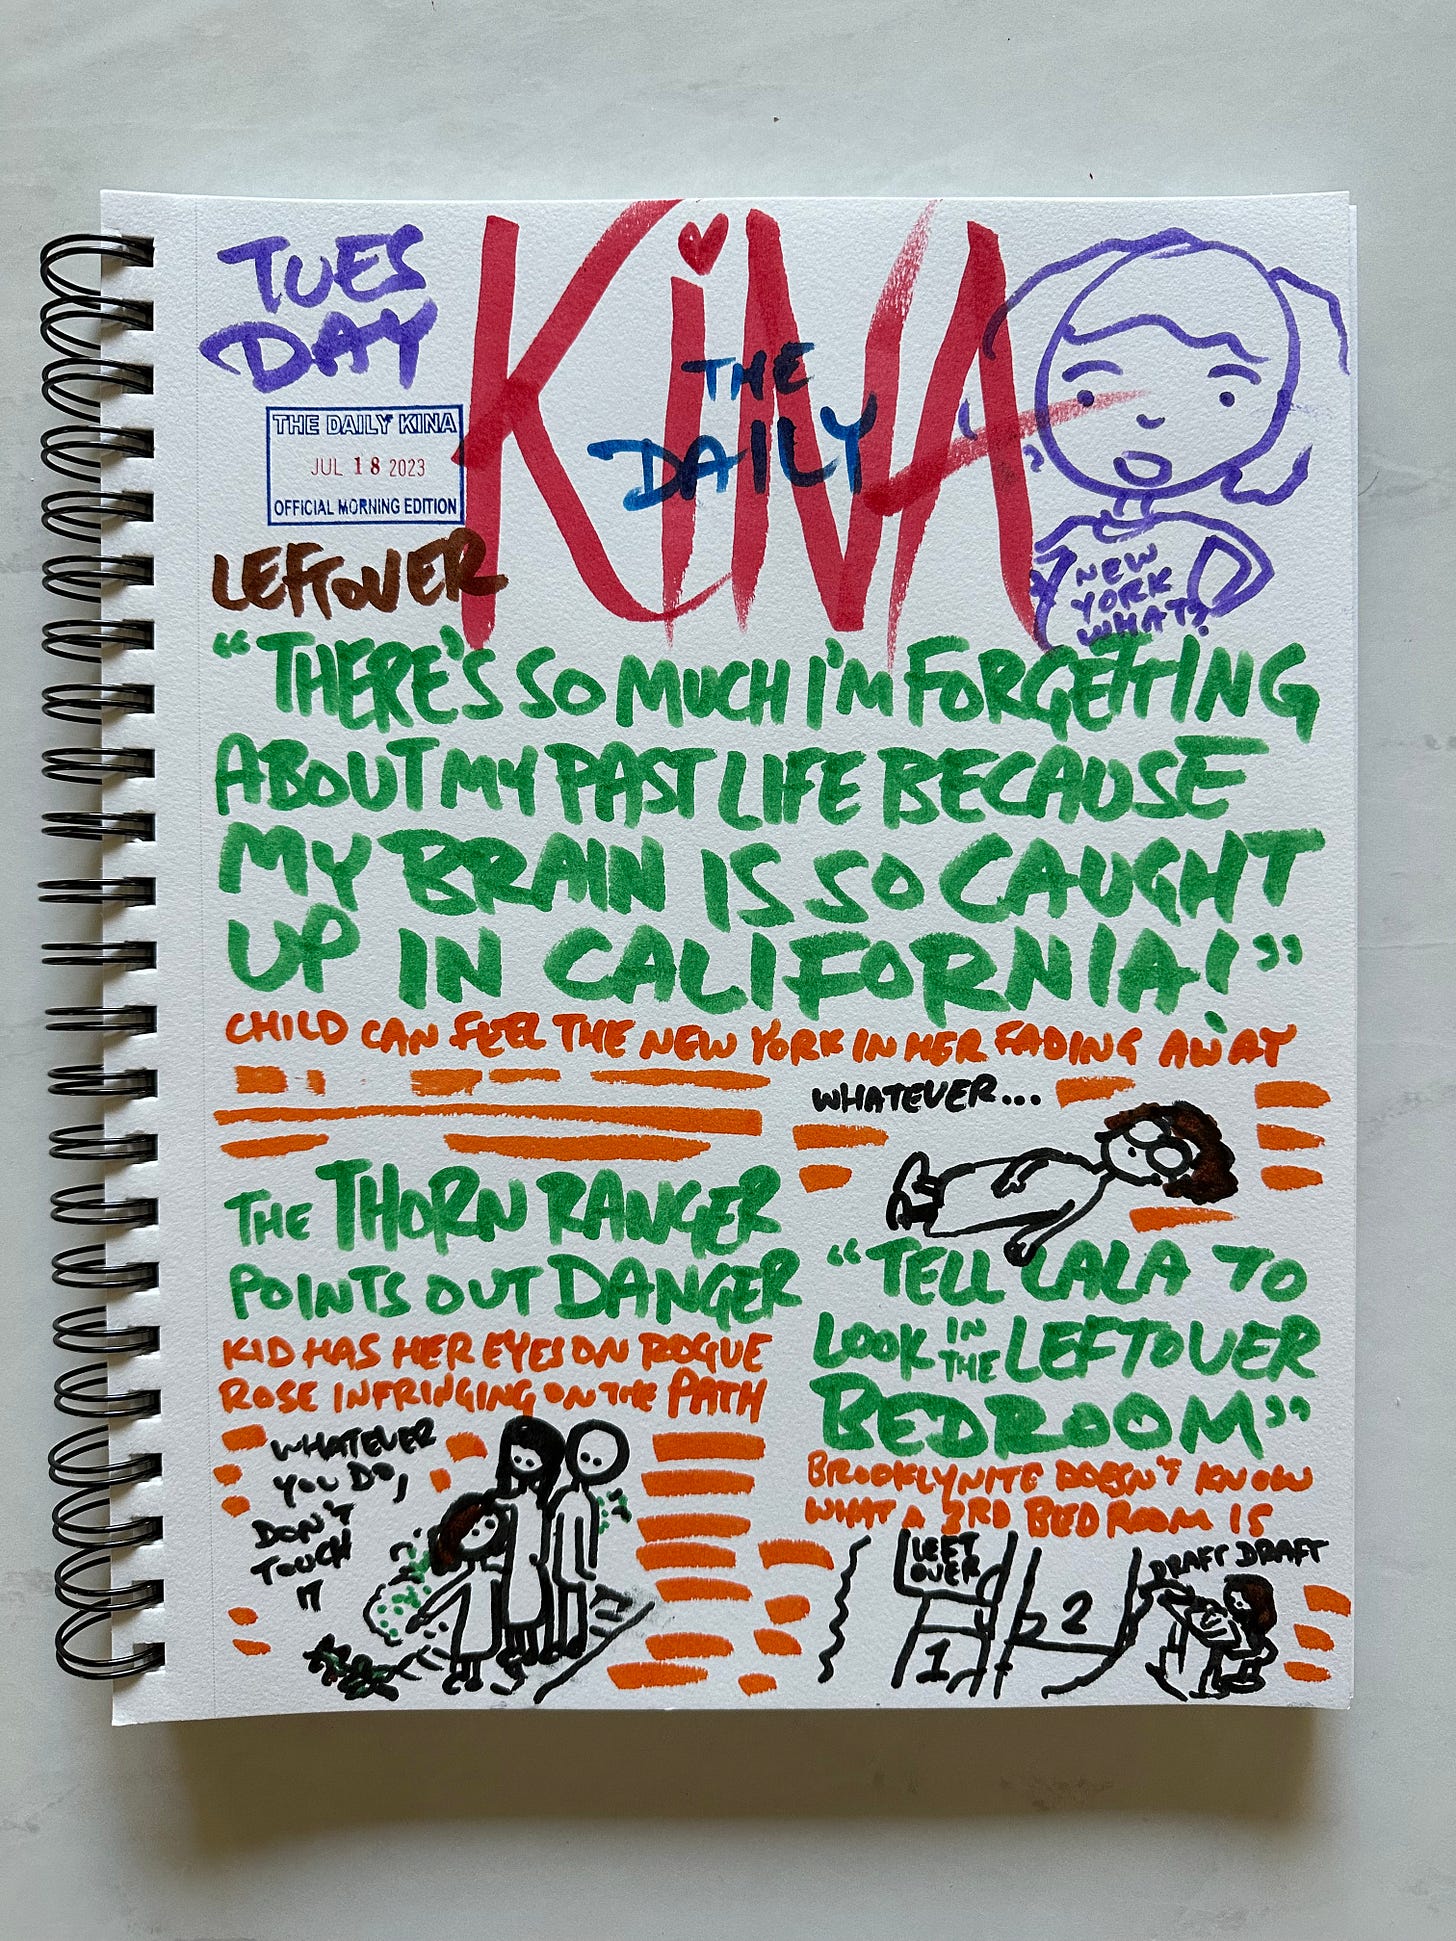 TUES
DAY
KiNA
THE
DAILY
THE DAILY KINA
JUL 18 2023
OFFICIAL MORNING EDITION
LEFTOVER
NEW
YORK
WHAT?
"THERE'S SO MUCH I'M FORGETTING
ABOUT MY PAST LIFE BECAUSE
MY BRAIN IS SO CAUGHT
UP IN CALIFORNIA!"
CHILD CAN FEEL THE NEW YORK IN HER FADING AWAY
WHATEVER...
THE THORN RANGER
POINTS OUT DANGER
KID HAS HER EYES ON ROGUE
ROSE INFRINGING ON THE PATH
WHATEVER
YOU DO,
DON'T
TOUCH
IT
"TELL LALA TO
LOOK IN THE LEFTOVER
BEDROOM"
BROOKLYNITE DOESN'T KNOW
WHAT A 3RD BEDROOM IS
LEFT
OVER
1
2
DRAFT DRAFT